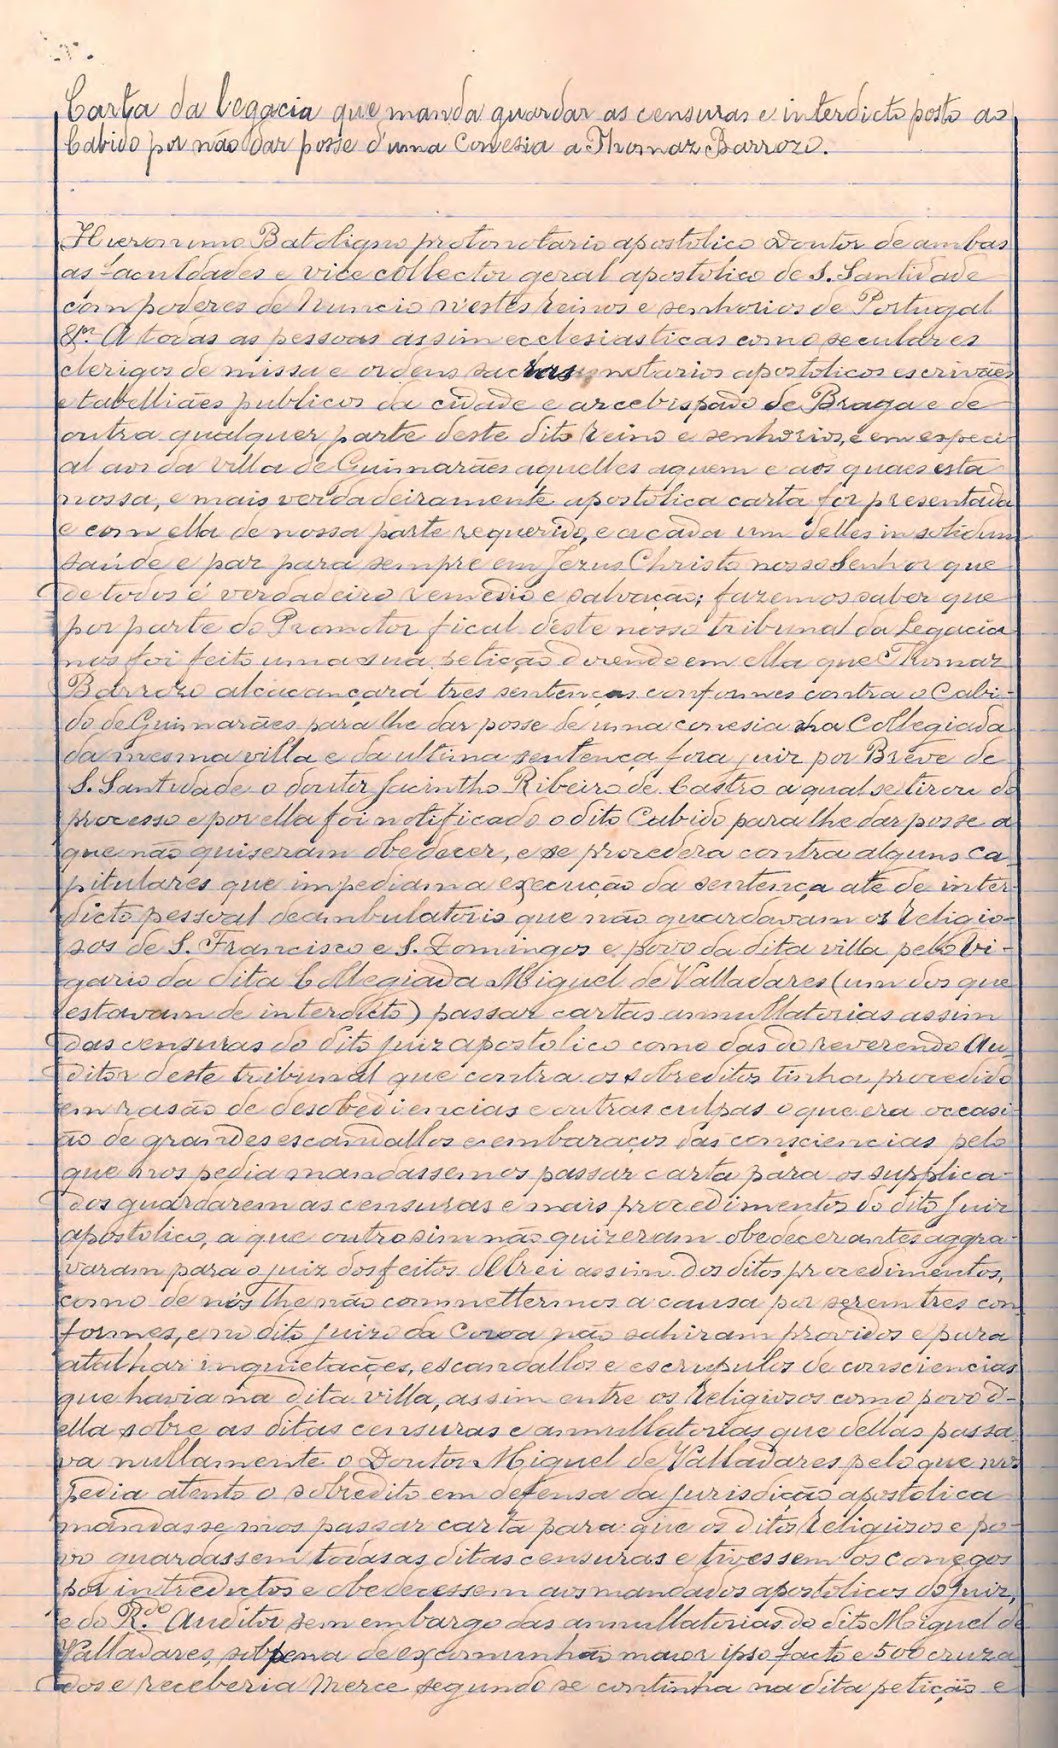 Carta da legacia que manda guardar as censuras e interdicto posto ao
Cabido por não dar posse d'uma Conesia a Thomaz Barrozo.
Hieronimo Batoligno protonotario apostolico Doutor de ambas
as faculdades e vice collector geral apostolico de S. Santidade
com poderes de Nuncio n'estes reinos e senhorios de Portugal
&ra A todas as pessoas assim ecclesiasticas como seculares
clerigos de missa e ordens sacras notarios apostolicos escrivães
e tabelliães publicos da cidade e arcebispado de Braga e de
outra qualquer parte deste dito reino e senhorios, e em especi-
al aos da villa de Guimarães aquelles aquem e aos quaes esta
nossa, e mais verdadeiramente apostolica carta for presentada
e com ella de nossa parte requerido, e a cada um delles in solidum
saúde e paz para sempre em Jezus Christo nosso Senhor que
de todos é verdadeiro remedio e salvação; fazemos saber que
por parte do Promotor fical d'este nosso tribunal da Legacia
nos foi feito uma sua petição dizendo em ella que Thomaz
Barrozo alcacançará tres sentenças conformes contra o Cabi-
do de Guimarães para lhe dar posse de uma conesia na Collegiada
da mesma villa e da ultima sentença fora juiz por Breve de
S. Santidade o doutor Jacintho Ribeiro de Castro a qual se tirou do
processo e por ella foi notificado o dito Cabido para lhe dar posse a
que não quiseram obedecer, e se procedera contra alguns ca-
pitulares que impediam a execução da sentença até de inter-
dicto pessoal deambulatorio que não guardavam os religio-
sos de S. Francisco e S. Domingos e povo da dita villa pelo Vi-
gario da dita Collegiada Miguel de Valladares (um dos que
estavam de interdicto) passar cartas annullatorias assim
das censuras do dito juiz apostolico como das do reverendo Au-
ditor deste tribunal que contra os sobreditos tinha procedido
em rasão de desobediencias e outras culpas o que era occasi-
ão de grandes escandallos e embaraços das consciencias pelo
que nos pedia mandassemos passar carta para os supplica-
dos guardarem as censuras e mais procedimentos do dito Juiz
apostolico, a que outrosim não quizeram obedecer antes aggra-
varam para o juiz dos feitos d'Elrei assim dos ditos procedimentos,
como de nós lhe não commettermos a causa por serem tres con-
formes, e no dito juizo da Coroa não sahiram providos e para
atalhar inquietações, escandallos e escrupulos de consciencias
que havia na dita villa, assim entre os religiosos como povo d'-
ella sobre as ditas censuras e annullatorias que dellas passa-
va nullamente o Doutor Miguel de Valladares pelo que nos
pedia atento o sobredito em defensa da jurisdição apostolica
mandassemos passar carta para que os ditos religiosos e po-
vo guardassem todas as ditas censuras e tivessem os conegos
por intredictos e obedecessem aos mandados apostolicos do Juiz,
e do R.do Auditor sem embargo das annullatorias do dito Miguel de
Valladares, sob pena de excomunhão maior ipso facto e 500 cruza-
dos e receberia Merce segundo se continha na dita petição e